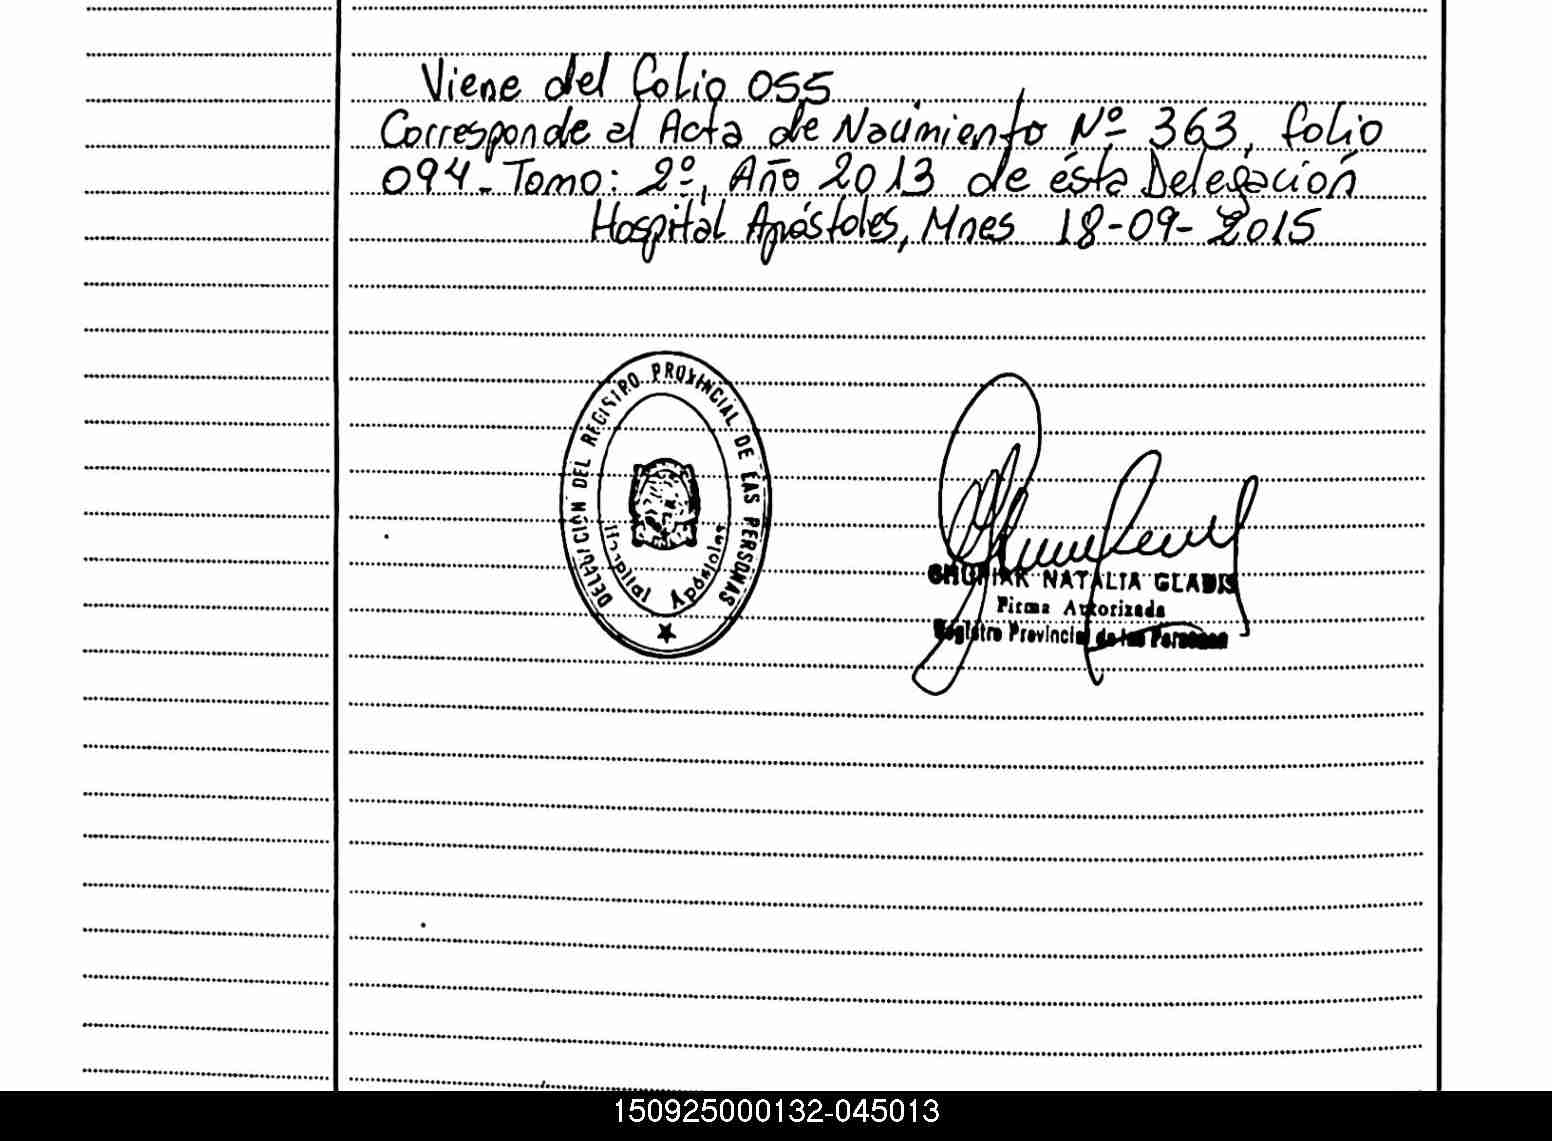 Viene del folio 055
Corresponde al Acta de Nacimiento Nº 363, folio
094-Tomo: 2º, Año 2013 de ésta Delegación
Hospital Apóstoles, Mnes 18-09-2015
DELEGACIÓN DEL REGISTRO PROVINCIAL DE LAS PERSONAS
Hospital Apóstoles
NATALIA GLADIS
Firma Autorizada
Registro Provincial de las Personas
150925000132-045013